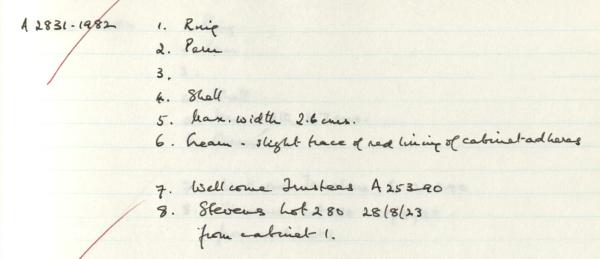 A 2831-1982 1. Ring
2. Peru
3.
4. Shell
5. Max. width 2.6 cms.
6. Cream - slight trace of red lining of cabinet adheres
7. Wellcome Trustees A 25390
8. Stevens Lot 280 28/8/23
from cabinet 1.